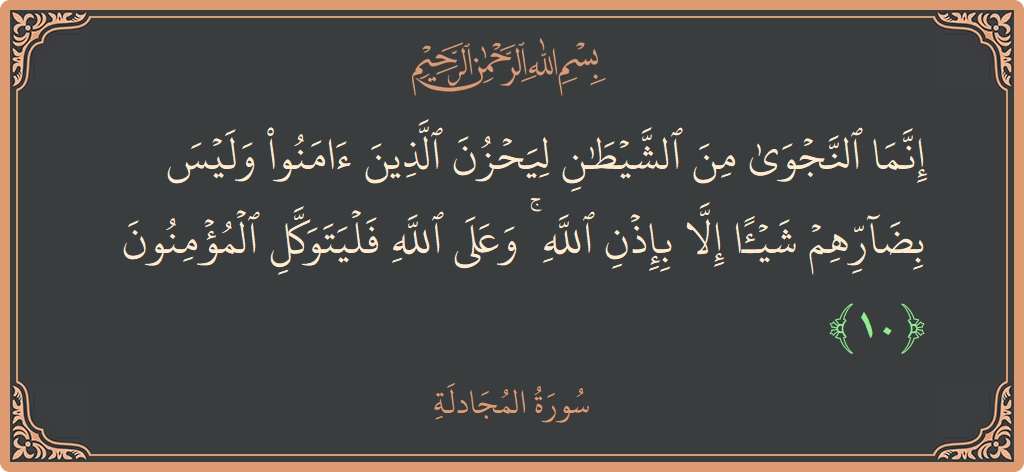 بِسْمِ اللَّهِ الرَّحْمَٰنِ الرَّحِيمِ
إِنَّمَا ٱلنَّجْوَىٰ مِنَ ٱلشَّيْطَـٰنِ لِيَحْزُنَ ٱلَّذِينَ ءَامَنُوا۟ وَلَيْسَ
بِضَآرِّهِمْ شَيْـًٔا إِلَّا بِإِذْنِ ٱللَّهِ ۚ وَعَلَى ٱللَّهِ فَلْيَتَوَكَّلِ ٱلْمُؤْمِنُونَ
﴿١٠﴾
سُورَةُ المُجَادلَةِ